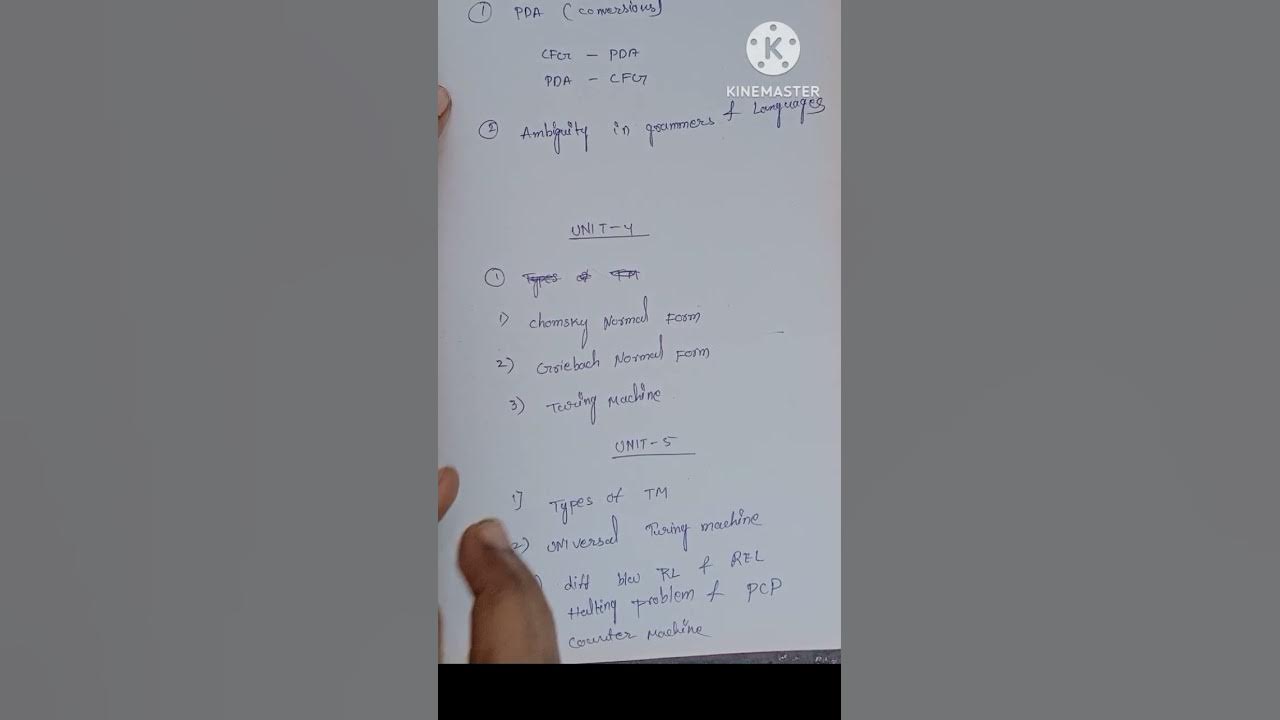 ① PDA (conversions)
CFG - PDA
PDA - CFG
KINEMASTER
② Ambiguity in grammers & Languages
UNIT-4
① Types of TM
1) Chomsky Normal Form
2) Griebach Normal Form
3) Turing Machine
UNIT-5
1] Types of TM
2) Universal Turing machine
) diff b/w RL & REL
Halting problem & PCP
Counter Machine